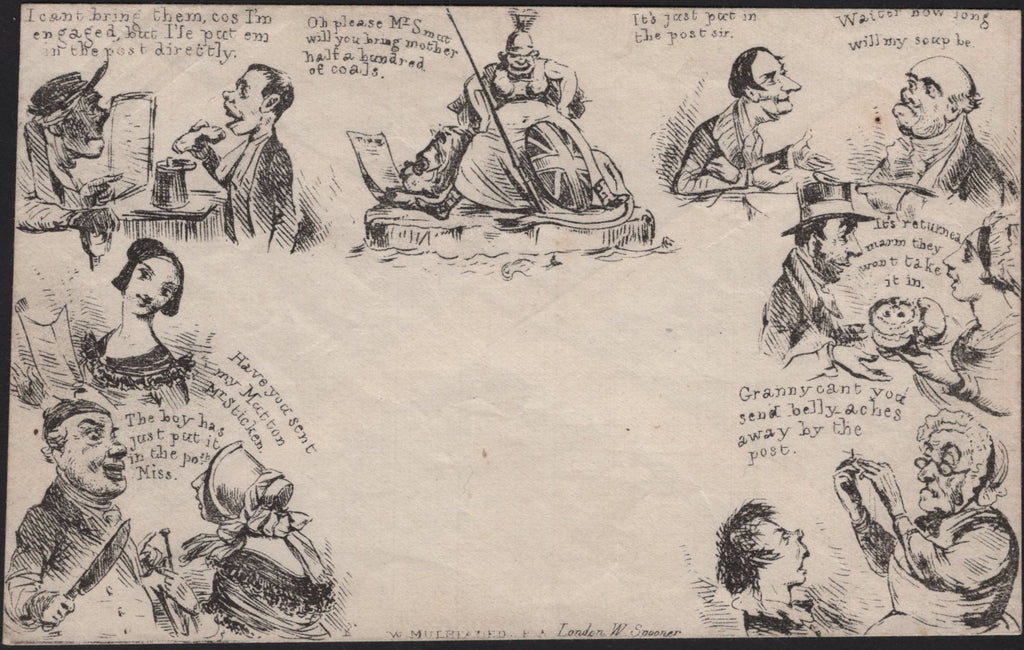 I cant bring them, cos I'm
engaged, but I'le put em
in the post directly.
Oh please Mr Smut
will you bring mother
half a hundred
of coals.
It's just put in
the post sir.
Waiter how long
will my soup be.
It's returned
marm they
wont take
it in.
Have you sent
my Mutton
Mr Sticken
The boy has
just put it
in the post
Miss.
Granny cant you
send belly-aches
away by the
post.
London W Spooner